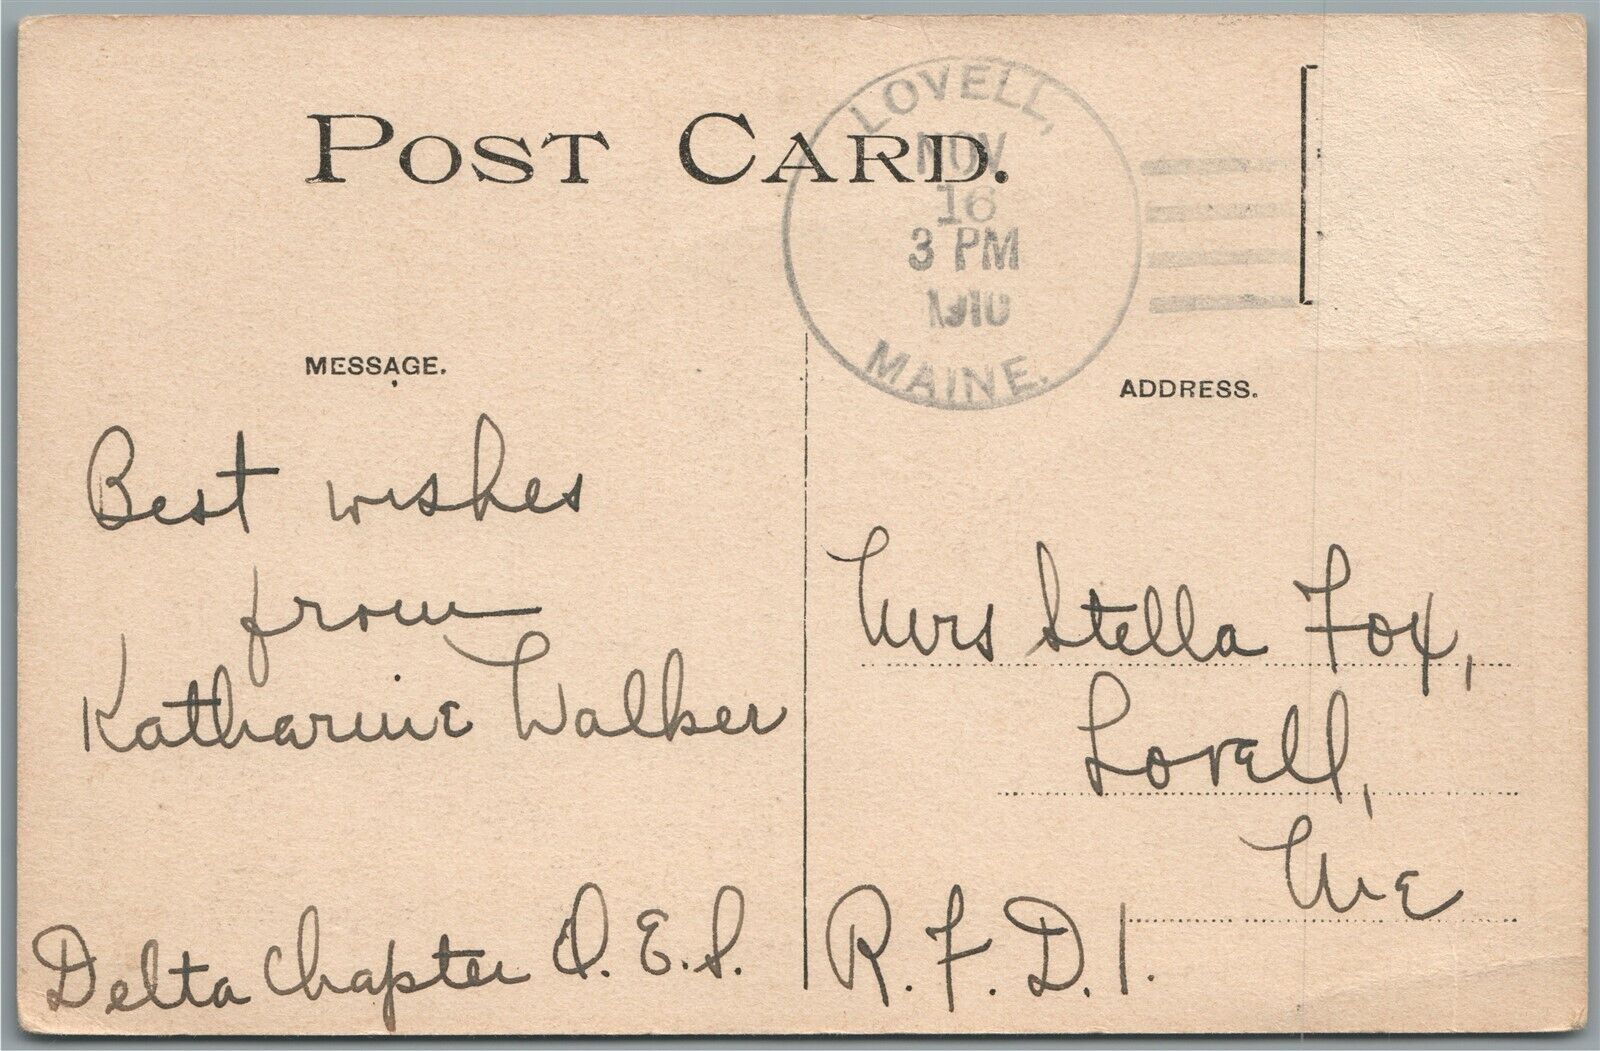 POST CARD.
LOVELL,
NOV
16
3 PM
1910
MAINE.
MESSAGE.
ADDRESS.
Best wishes
from
Katharine Walker
Delta Chapter O.E.S.
Mrs Stella Fox,
Lovell,
Me
R.F.D.1.